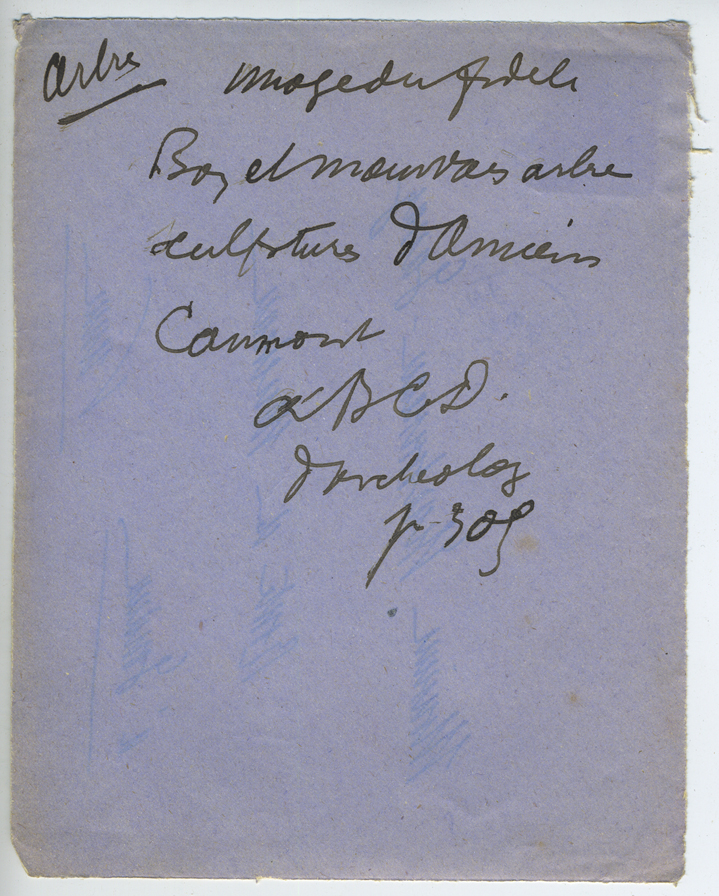 arbre image du fidele
Bon et mauvais arbre
sculptures d'Amiens
Caumont
ABCD.
d'archeolog
p. 305